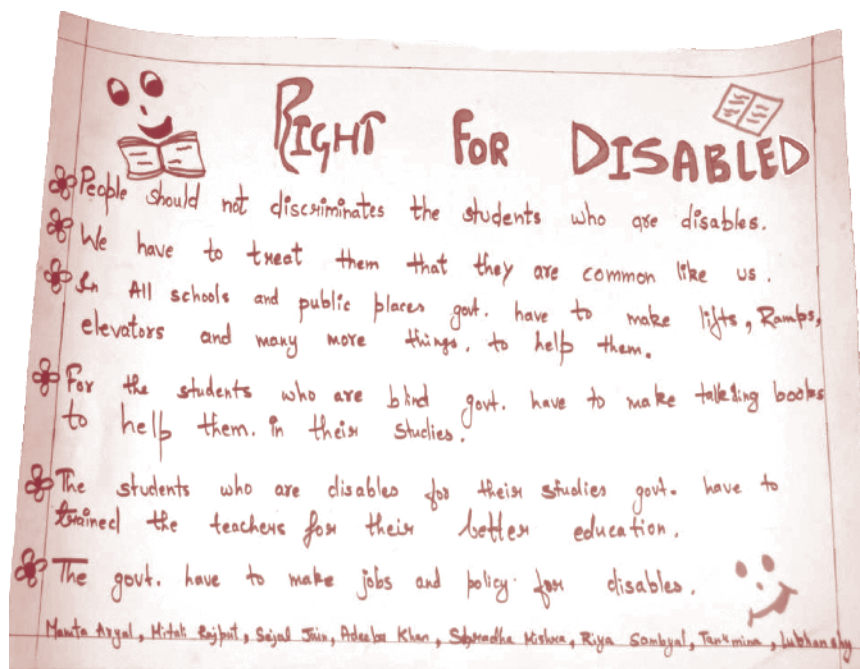 RIGHT FOR DISABLED
People should not discriminates the students who are disables.
We have to treat them that they are common like us.
In All schools and public places govt. have to make lifts, Ramps,
elevators and many more things. to help them.
For the students who are blind govt. have to make talking books
to help them. in their studies.
The students who are disables for their studies govt. have to
trained the teachers for their better education.
The govt. have to make jobs and policy for disables.
Mamta Aryal, Mitali Rajput, Sejal Jain, Adeeba Khan, Mishra, Riya Sambyal, Tanumina,